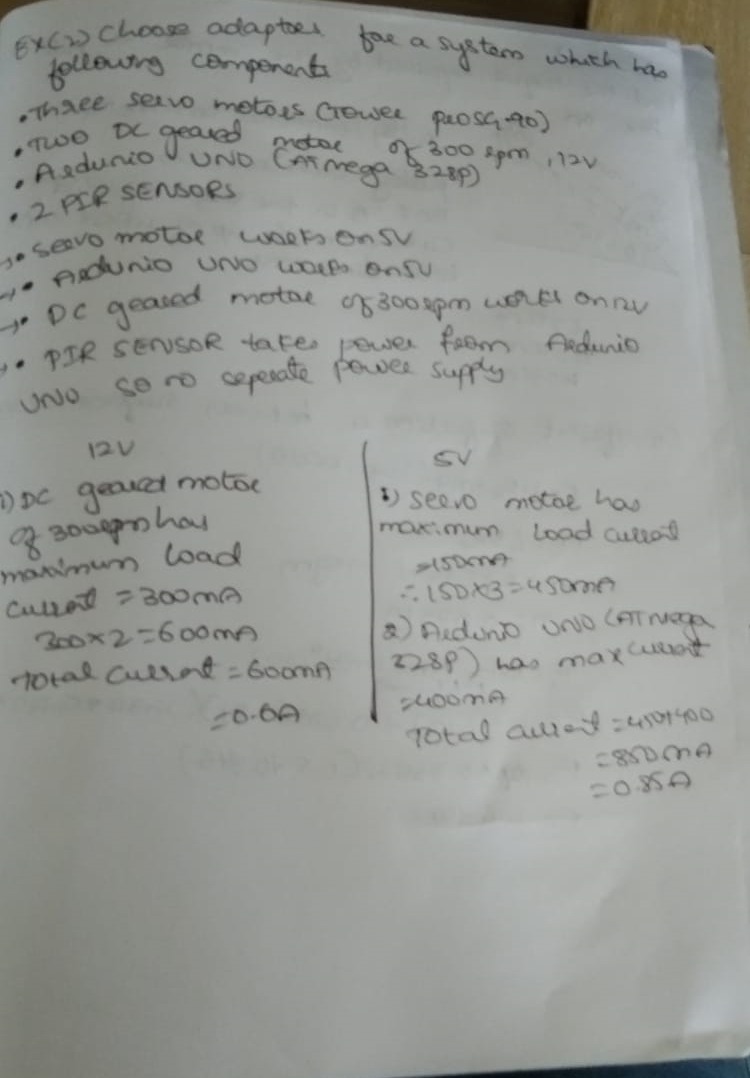 Ex(2) Choose adaptors for a system which has
following components
• Three servo motors (Tower proSG-90)
• TWO DC geared motor of 300 rpm, 12V
• Ardunio UNO (ATmega 328p)
• 2 PIR SENSORS
→• Servo motor works on 5V
→• Ardunio UNO works on 5V
→• DC geared motor of 300rpm works on 12V
→• PIR SENSOR takes power from Ardunio
UNO so no seperate power supply
12V
1) DC geared motor
of 300rpm has
maximum load
current = 300mA
300×2=600mA
Total current = 600mA
=0.6A
5V
1) Servo motor has
maximum load current
=150mA
∴ 150×3=450mA
2) Arduno UNO (ATmega
328p) has max current
=400mA
Total current = 450+400
=850mA
=0.85A